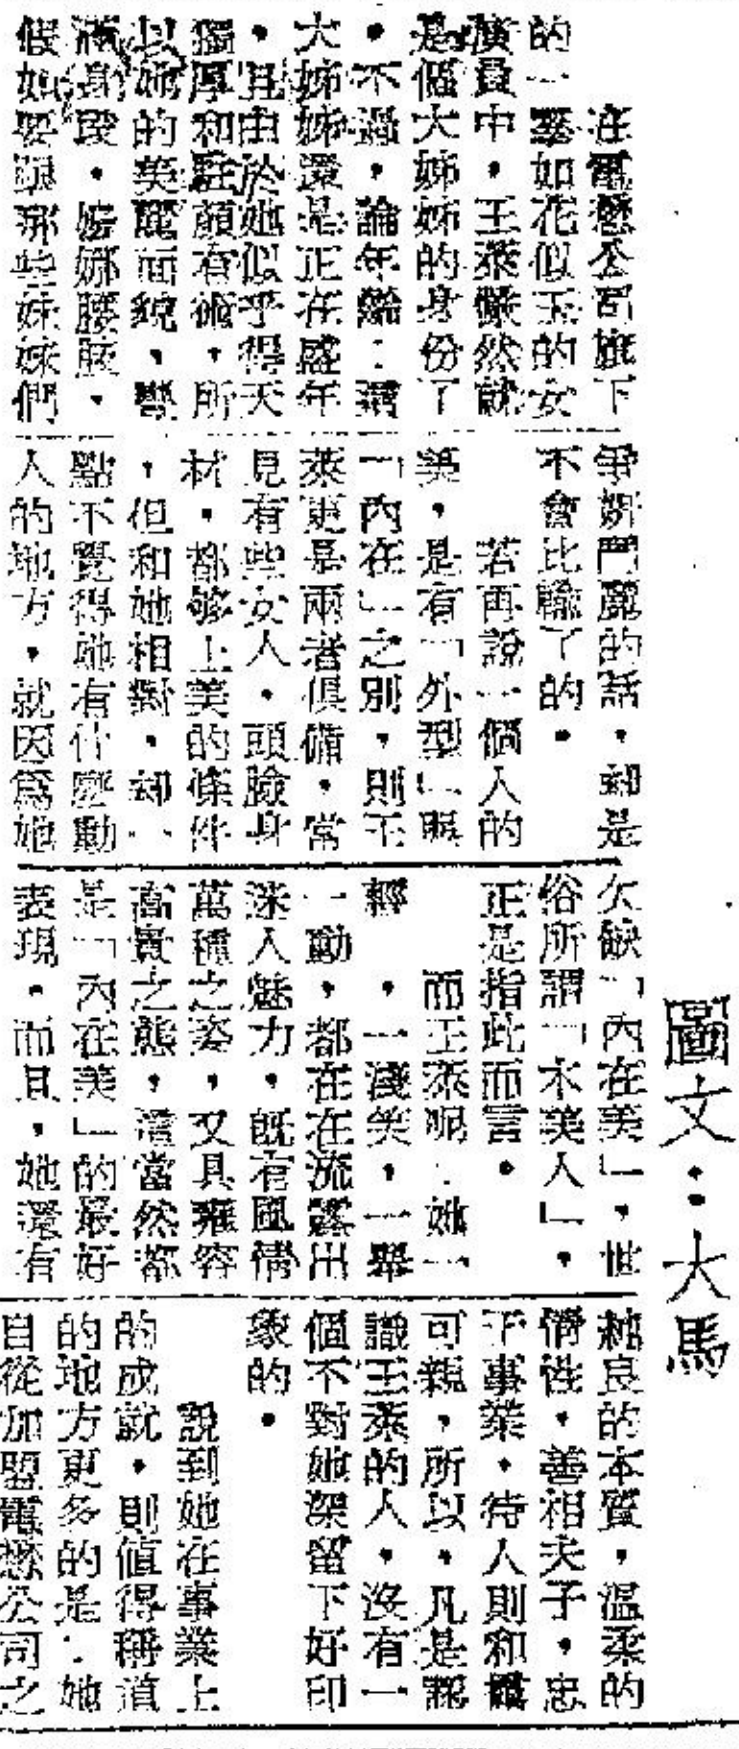 圖文：大馬
在電懋公司旗下
的一羣如花似玉的女
演員中，王萊儼然就
是個大姊姊的身份了
。不過，論年齡：這
大姊姊還是正在盛年
，且由於她似乎得天
獨厚和駐顏有術，所
以她的美麗面貌，豐
滿身段，婀娜腰肢，
假如要跟那些妹妹們
爭妍鬥麗的話，却是
不會比輸了的。
若再說一個人的
美，是有「外型」與
「內在」之別，則王
萊更是兩者俱備，常
見有些女人，頭臉身
材，都够上美的條件
，但和她相對，却一
點不覺得她有什麼動
人的地方，就因爲她
欠缺「內在美」，世
俗所謂「木美人」，
正是指此而言。
而王萊呢：她一
輕，一淺笑，一舉
一動，都在在流露出
迷人魅力，既有風情
萬種之姿，又具雍容
高貴之態，這當然都
是「內在美」的最好
表現。而且，她還有
純良的本質，溫柔的
情性，善相夫子，忠
于事業，待人則和藹
可親，所以，凡是認
識王萊的人，沒有一
個不對她深留下好印
象的。
說到她在事業上
的成就，則值得稱道
的地方更多的是：她
自從加盟電懋公司之